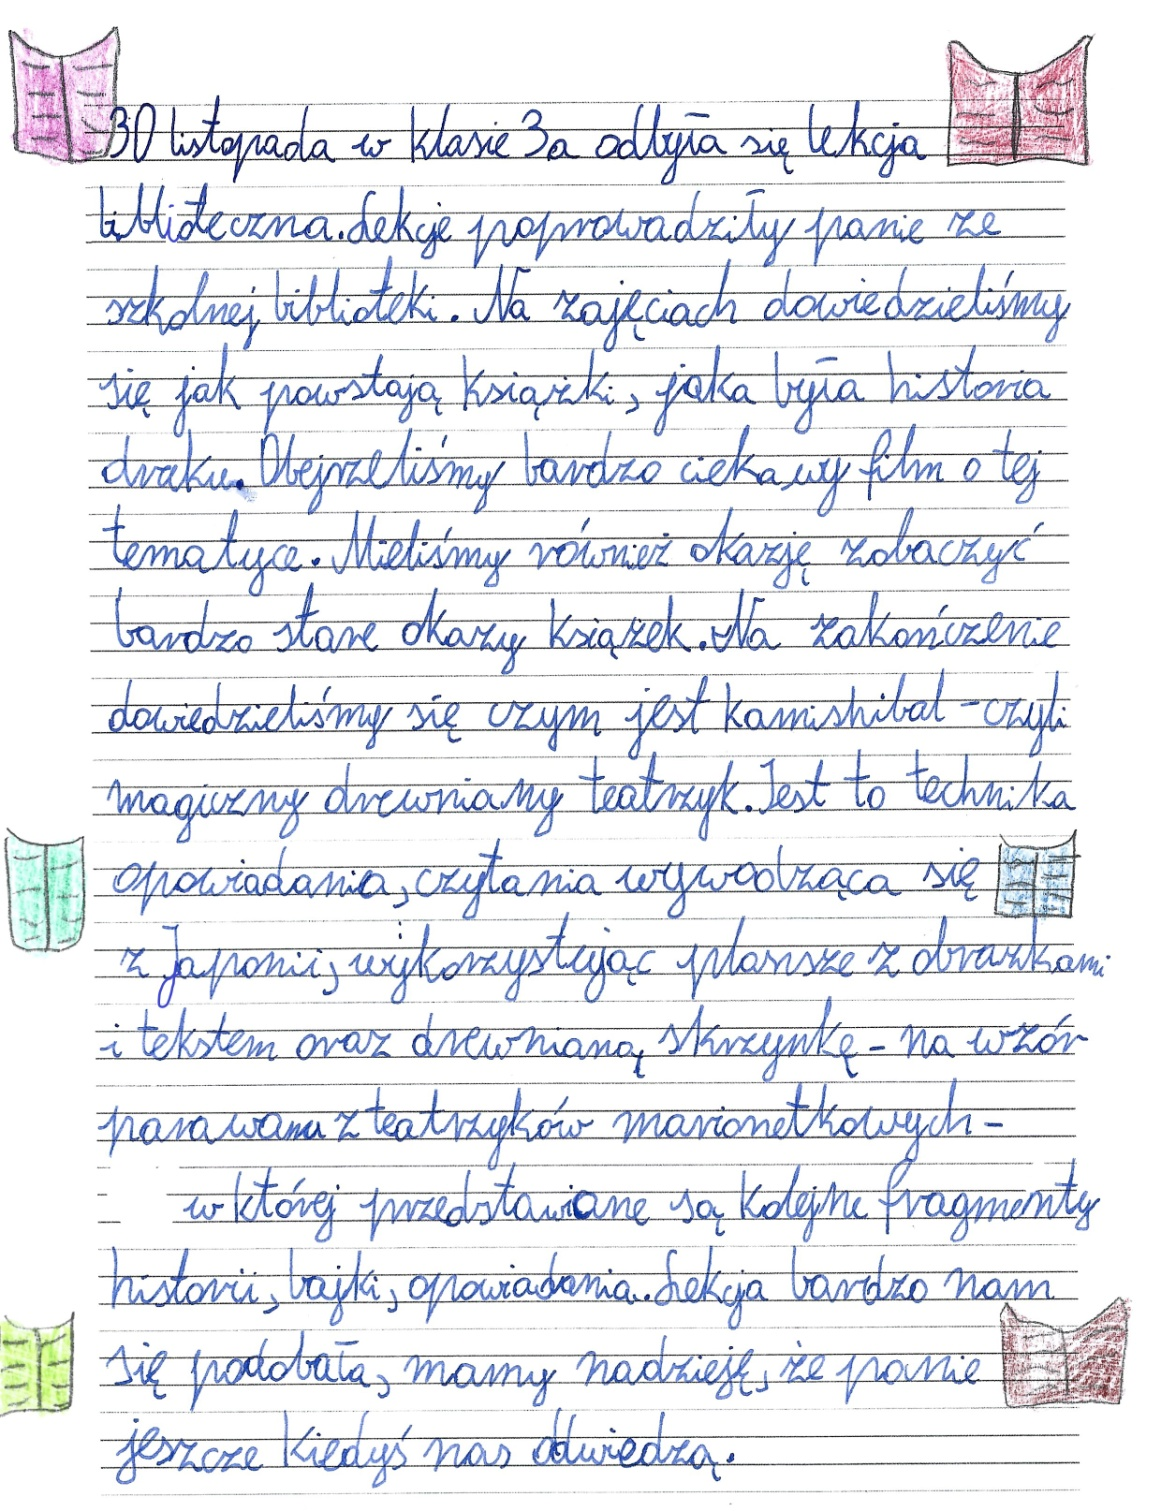 30 listopada w klasie 3a odbyła się lekcja
biblioteczna. Lekcje poprowadziły panie ze
szkolnej biblioteki. Na zajęciach dowiedzieliśmy
się jak powstają książki, jaka była historia
druku. Obejrzeliśmy bardzo ciekawy film o tej
tematyce. Mieliśmy również okazję zobaczyć
bardzo stare okazy książek. Na zakończenie
dowiedzieliśmy się czym jest kamishibal - czyli
magiczny drewniany teatrzyk. Jest to technika
opowiadania, czytania wywodząca się
z Japonii, wykorzystując plansze z obrazkami
i tekstem oraz drewnianą skrzynkę - na wzór
parawanu z teatrzyków marionetkowych -
w której przedstawiane są kolejne fragmenty
historii, bajki, opowiadania. Lekcja bardzo nam
się podobała, mamy nadzieję, że panie
jeszcze kiedyś nas odwiedzą.